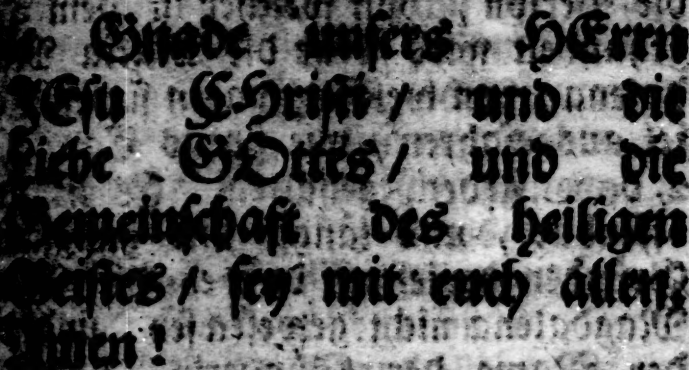 Gnade unsers HErrn
JEsu CHristi / und die
Liebe GOttes / und die
Gemeinschaft des heiligen
Geistes / sey mit euch allen.
Amen!